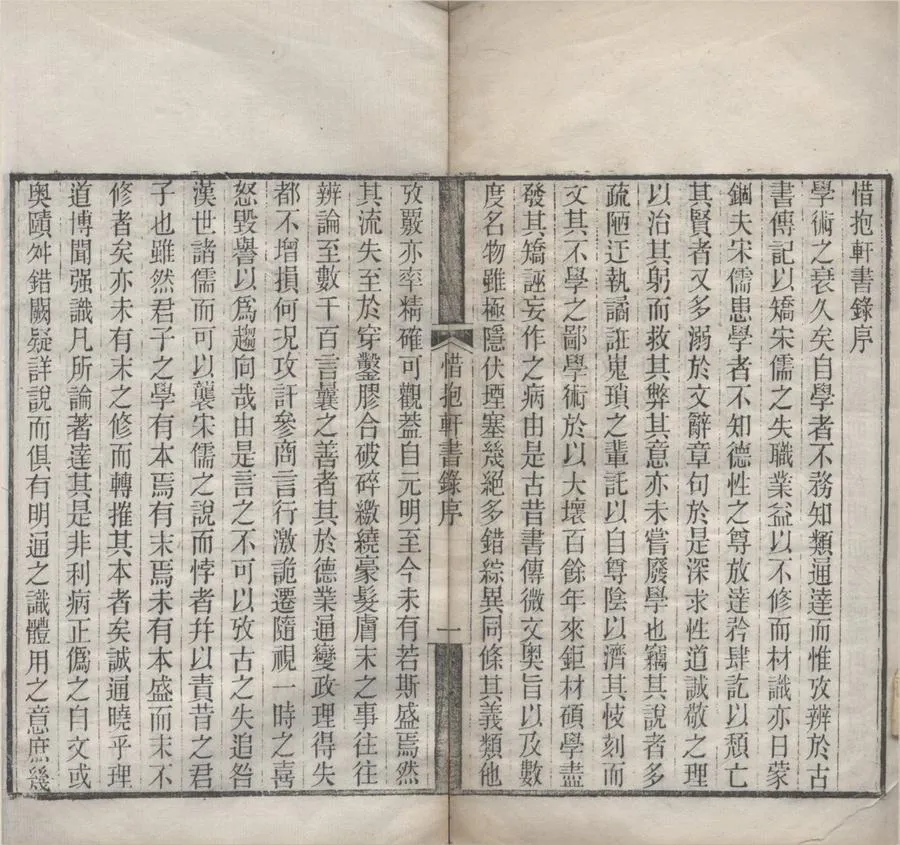 惜抱軒書錄序
學術之衰久矣自學者不務知類通達而惟攷辨於古
書傳記以矯宋儒之失職業益以不修而材識亦日蒙
錮夫宋儒患學者不知德性之尊放達矜肆訖以頹亡
其賢者又多溺於文辭章句於是深求性道誠敬之理
以治其躬而救其弊其意亦未嘗廢學也竊其說者多
疏陋迂執譎誑嵬瑣之輩託以自尊陰以濟其忮刻而
文其不學之鄙學術於以大壞百餘年來鉅材碩學盡
發其矯誣妄作之病由是古昔書傳微文奧旨以及數
度名物雖極隱伏堙塞幾絕多錯綜異同條其義類他
惜抱軒書錄序
一
攷覈亦率精確可觀葢自元明至今未有若斯盛焉然
其流失至於穿鑿膠合破碎繳繞豪髮膚末之事往往
辨論至數千百言曩之善者其於德業通變政理得失
都不增損何況攻訐參商言行激詭遷隨視一時之喜
怒毀譽以爲趨向哉由是言之不可以攷古之失追咎
漢世諸儒而可以襲宋儒之說而悖者幷以責昔之君
子也雖然君子之學有本焉有末焉未有本盛而末不
修者矣亦未有末之修而轉摧其本者矣誠通曉乎理
道博聞强識凡所論著達其是非利病正僞之自文或
奧賾舛錯闕疑詳說而俱有明通之識體用之意庶幾